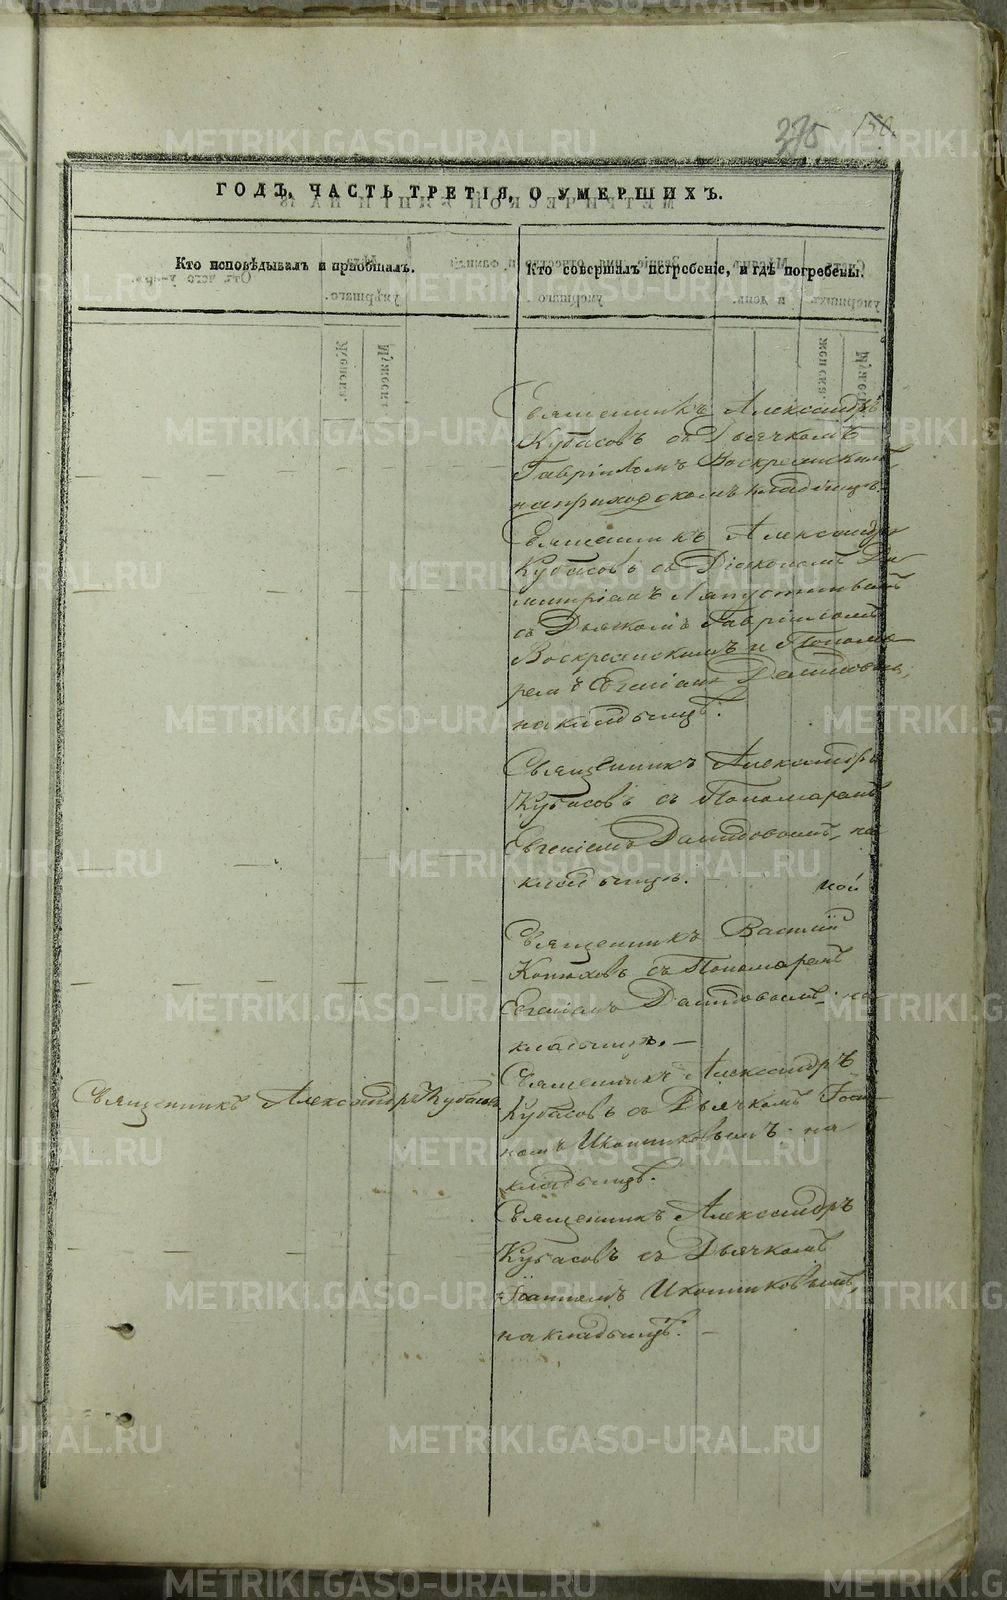 375
150.
ГОДЪ, ЧАСТЬ ТРЕТІЯ, О УМЕРШИХЪ.
Кто исповѣдывалъ и пріобщалъ.
Кто совершалъ погребеніе, и гдѣ погребены.
Священникъ Александръ
Кубасовъ съ Дьячкомъ
Гавріиломъ Воскресенскимъ,
на приходскомъ кладбищѣ.
Священникъ Александръ
Кубасовъ съ Діакономъ Ди-
митріемъ Лапустинымъ
съ Дьячкомъ Гавріиломъ
Воскресенскимъ и Понома-
ремъ Евгеніемъ Демидовымъ,
на кладбищѣ.
Священникъ Александръ
Кубасовъ съ Пономаремъ
Евгеніемъ Демидовымъ, на
кладбищѣ.
Священникъ Василій
Конюховъ съ Пономаремъ
Евгеніемъ Демидовымъ, на
кладбищѣ. —
Священникъ Александръ
Кубасовъ съ Дьячкомъ Іоан-
номъ Иконниковымъ на
кладбищѣ.
Священникъ Александръ Кубасовъ
Священникъ Александръ
Кубасовъ съ Дьячкомъ
Іоанномъ Иконниковымъ,
на кладбищѣ. —
METRIKI.GASO-URAL.RU